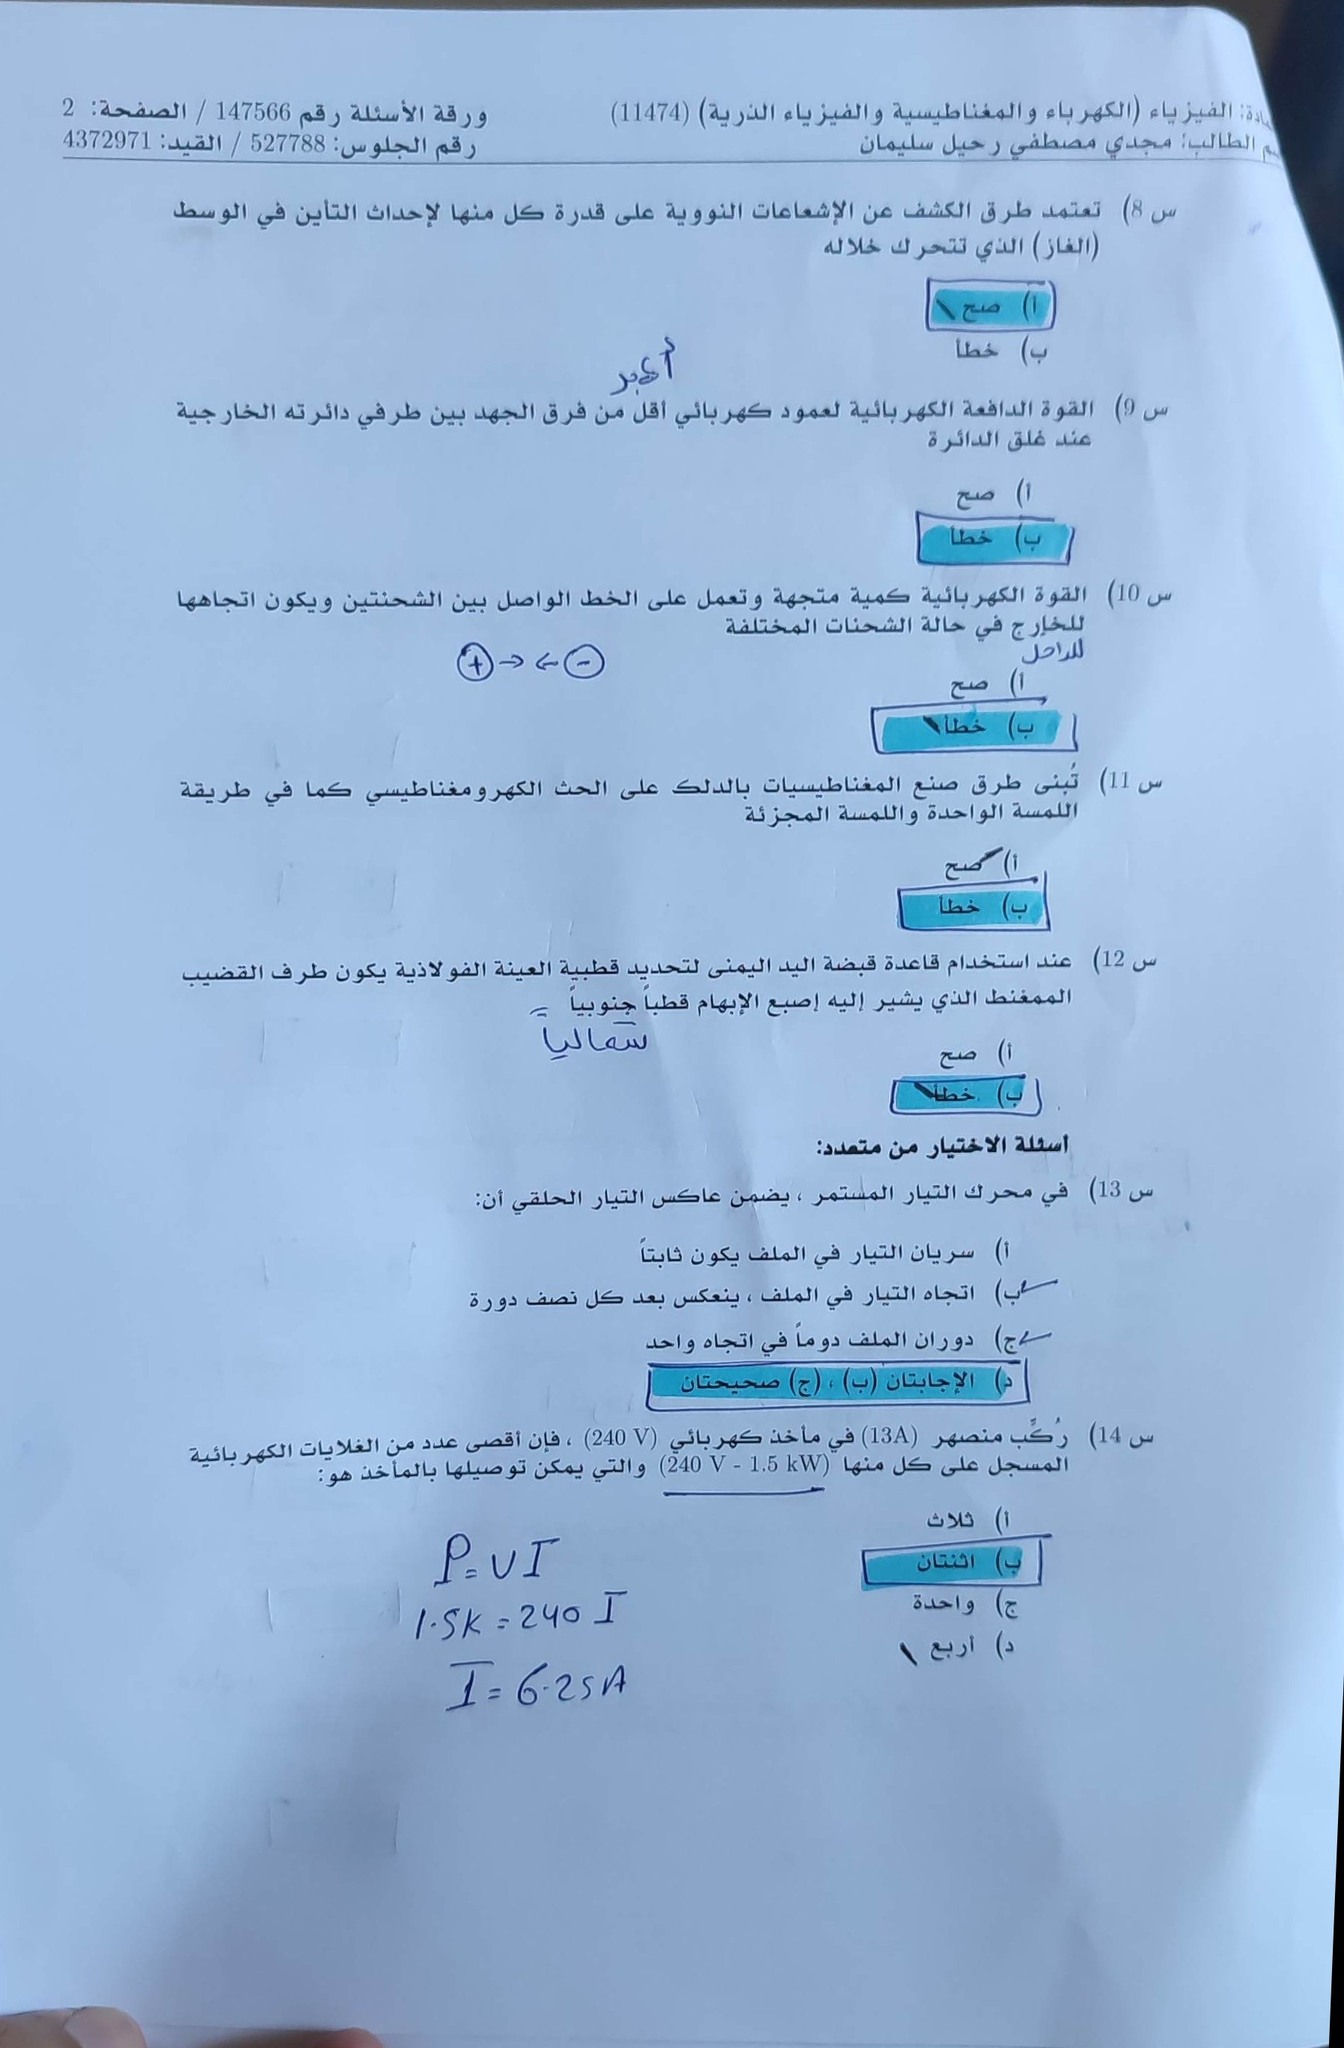 المادة: الفيزياء (الكهرباء والمغناطيسية والفيزياء الذرية) (11474) ورقة الأسئلة رقم 147566 / الصفحة: 2
اسم الطالب: مجدي مصطفي رحيل سليمان رقم الجلوس: 527788 / القيد: 4372971
س 8) تعتمد طرق الكشف عن الإشعاعات النووية على قدرة كل منها لإحداث التأين في الوسط
(الغاز) الذي تتحرك خلاله
أ) صح
ب) خطأ
أكبر
س 9) القوة الدافعة الكهربائية لعمود كهربائي أقل من فرق الجهد بين طرفي دائرته الخارجية
عند غلق الدائرة
أ) صح
ب) خطأ
س 10) القوة الكهربائية كمية متجهة وتعمل على الخط الواصل بين الشحنتين ويكون اتجاهها
للخارج في حالة الشحنات المختلفة
للداخل
+ → ← -
أ) صح
ب) خطأ
س 11) تُبنى طرق صنع المغناطيسيات بالدلك على الحث الكهرومغناطيسي كما في طريقة
اللمسة الواحدة واللمسة المجزئة
أ) صح
ب) خطأ
س 12) عند استخدام قاعدة قبضة اليد اليمنى لتحديد قطبية العينة الفولاذية يكون طرف القضيب
الممغنط الذي يشير إليه إصبع الإبهام قطباً جنوبياً
شمالياً
أ) صح
ب) خطأ
أسئلة الاختيار من متعدد:
س 13) في محرك التيار المستمر ، يضمن عاكس التيار الحلقي أن:
أ) سريان التيار في الملف يكون ثابتاً
ب) اتجاه التيار في الملف ، ينعكس بعد كل نصف دورة
ج) دوران الملف دوماً في اتجاه واحد
د) الإجابتان (ب) ، (ج) صحيحتان
س 14) رُكِّب منصهر (13A) في مأخذ كهربائي (240 V) ، فإن أقصى عدد من الغلايات الكهربائية
المسجل على كل منها (240 V - 1.5 kW) والتي يمكن توصيلها بالمأخذ هو:
أ) ثلاث
ب) اثنتان
ج) واحدة
د) أربع
P = VI
1.5K = 240 I
I = 6.25A